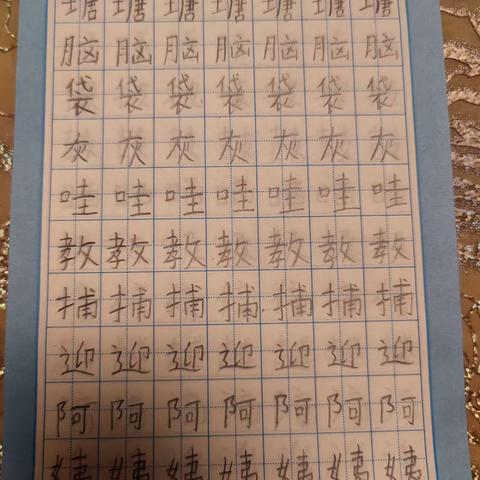 塘塘塘塘塘塘塘
脑脑脑脑脑脑脑
袋袋袋袋袋袋袋
灰灰灰灰灰灰灰
哇哇哇哇哇哇哇
教教教教教教教
捕捕捕捕捕捕捕
迎迎迎迎迎迎迎
阿阿阿阿阿阿阿
姨姨姨姨姨姨姨